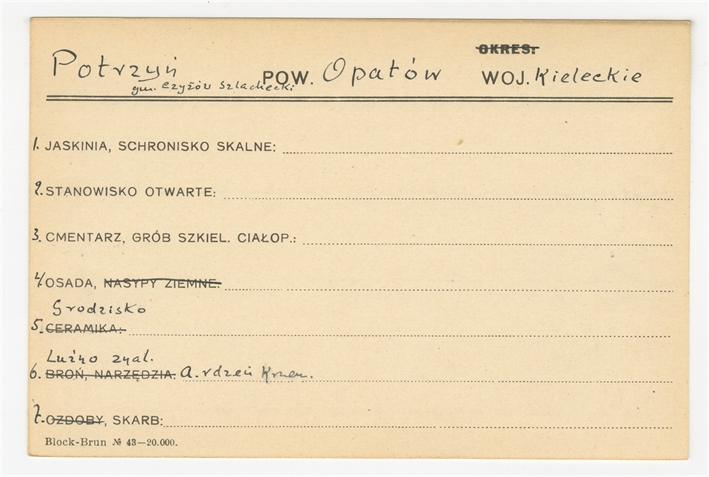 OKRES:
Potrzyń POW. Opatów WOJ. Kieleckie
gm. Czyżów Szlachecki
1. JASKINIA, SCHRONISKO SKALNE:
2. STANOWISKO OTWARTE:
3. CMENTARZ, GRÓB SZKIEL. CIAŁOP.:
4. OSADA, NASYPY ZIEMNE:
Grodzisko
5. CERAMIKA:
Luźno znal.
6. BROŃ, NARZĘDZIA: a. rdzeń krzem.
7. OZDOBY, SKARB:
Block-Brun № 43—20.000.